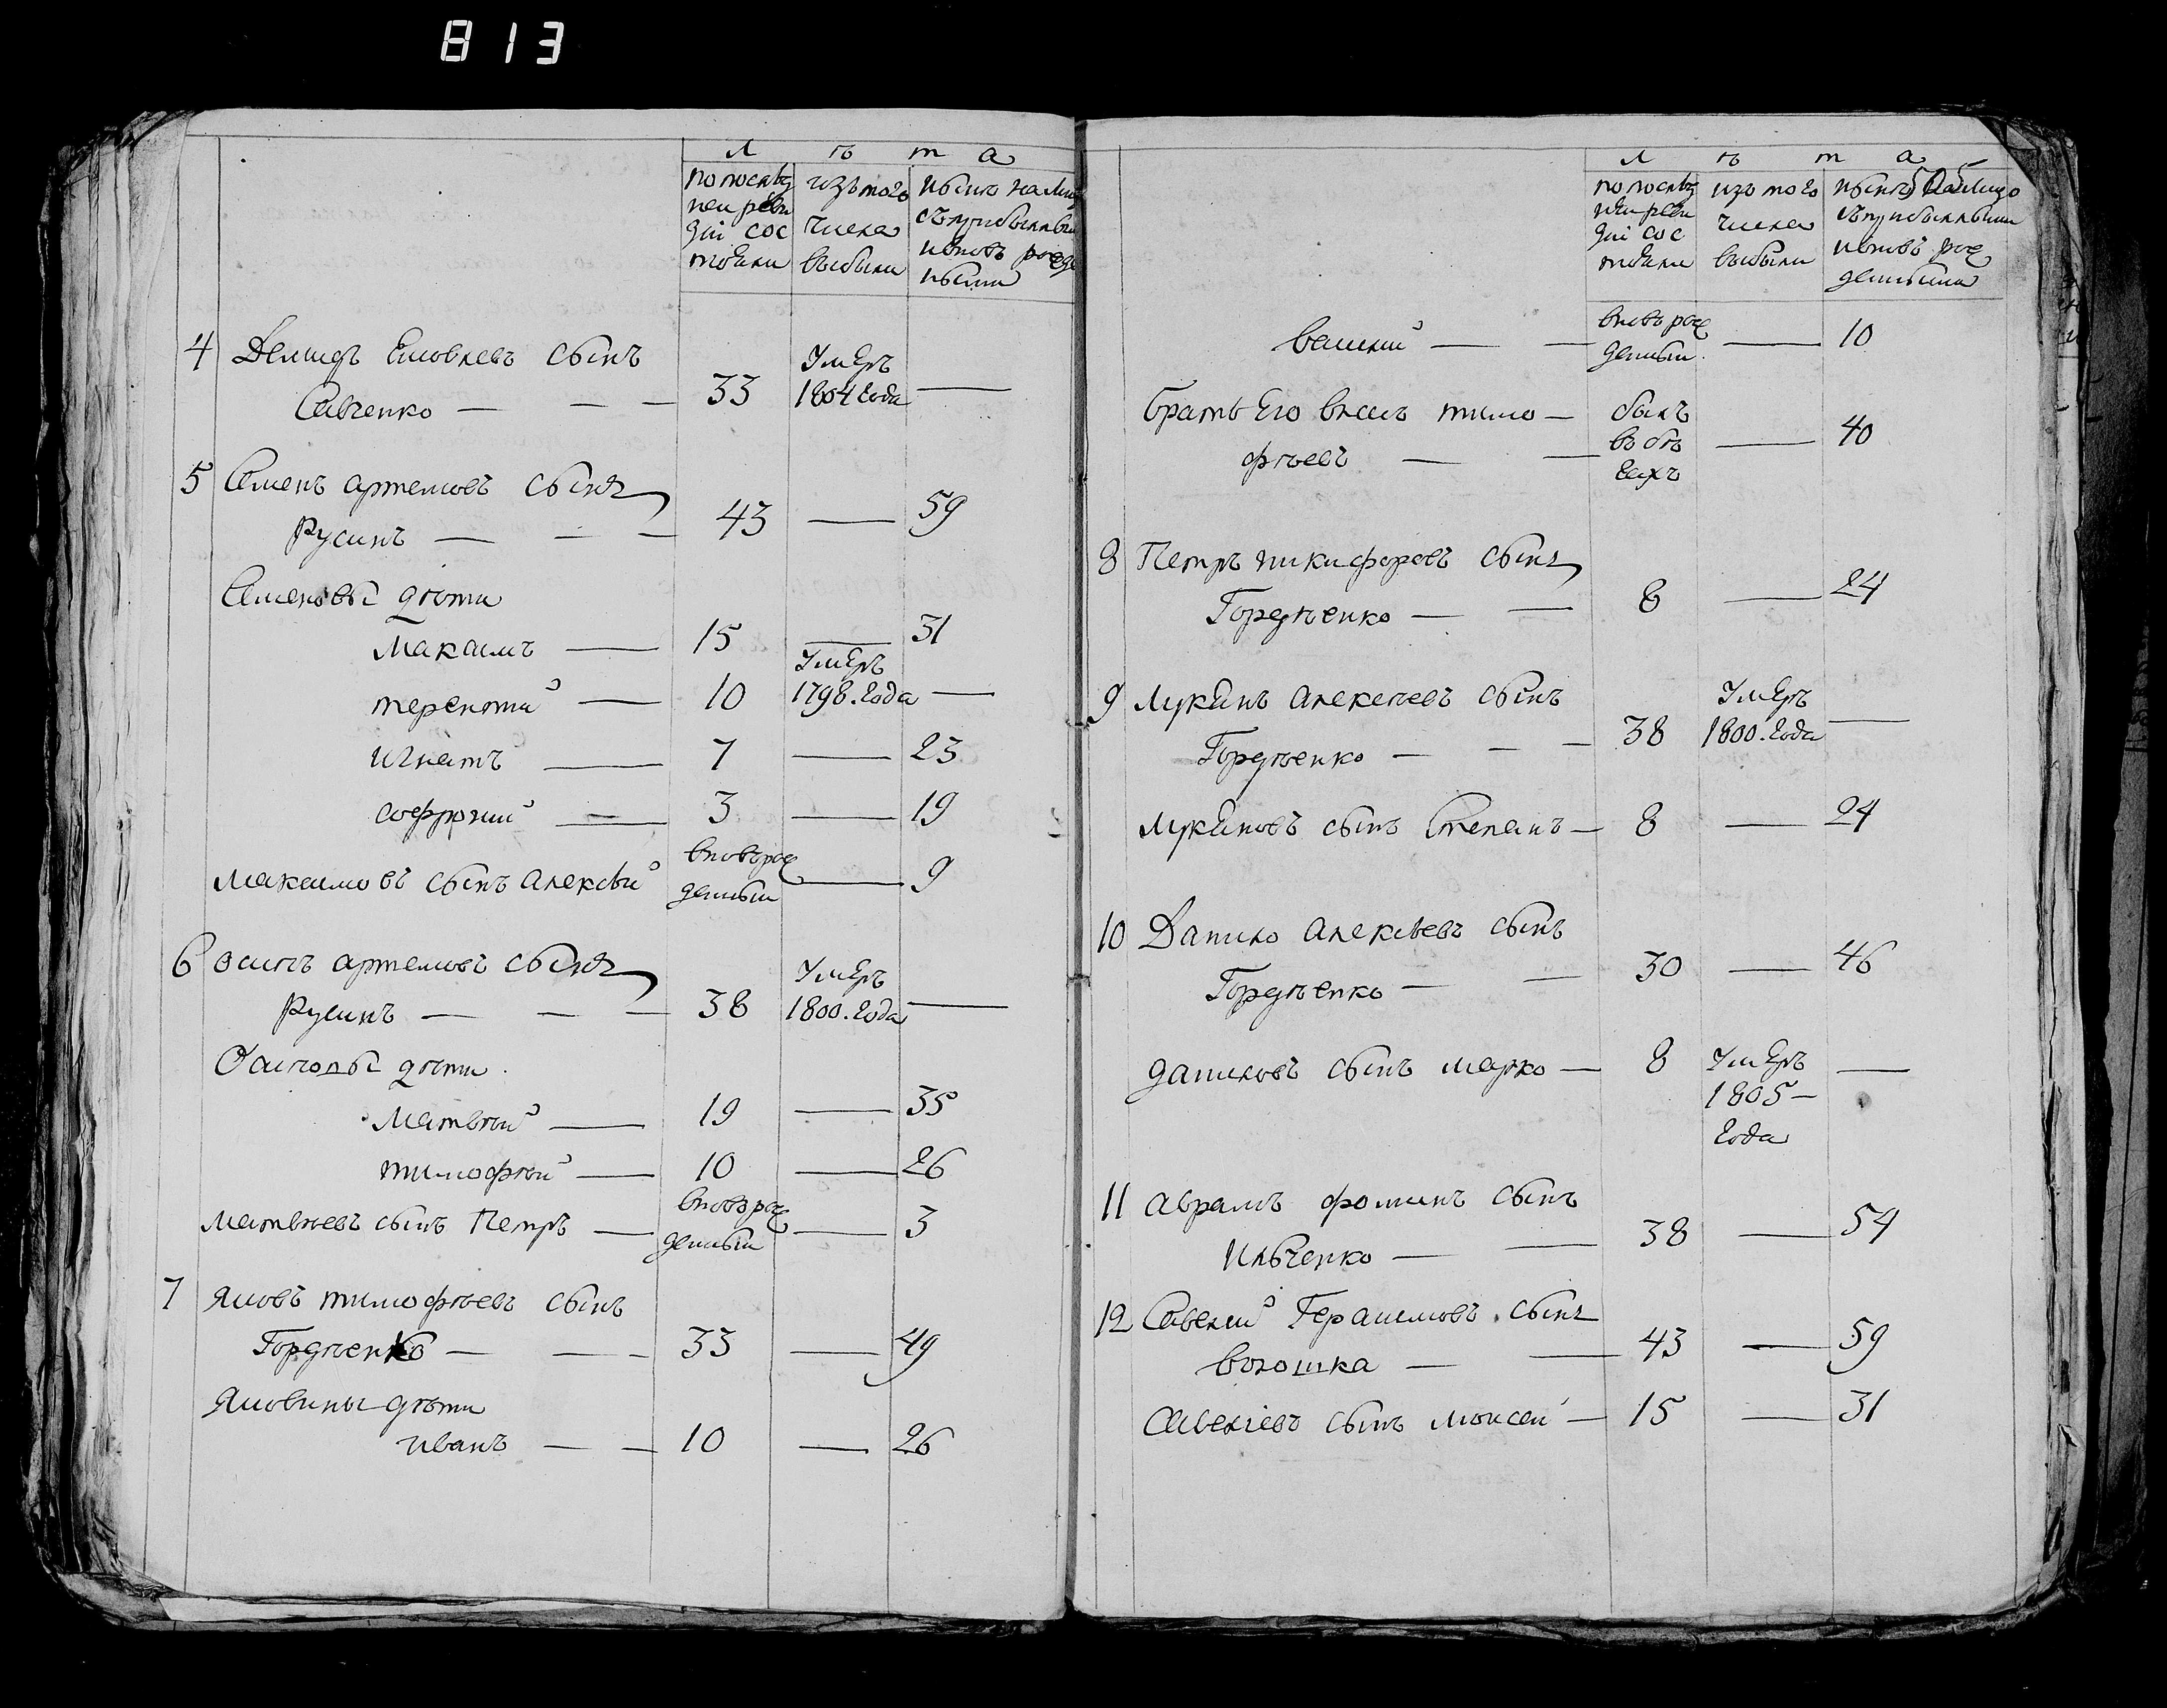 813
л ѣ т а
по послѣд
ней реви
зіи сос
тояли
изъ того
числа
выбыли
нынѣ на лицо
съ прибылыми
и вновь рожде
ными
4 Демидъ Емовлевъ сынъ
Савченко — — — 33 умеръ 1804 года —
5 Семенъ артемовъ сынъ
Русинъ — — — 43 — 59
Семеновы дѣти
Максимъ — 15 — 31
терентий — 10 умеръ 1798. года —
игнатъ — 7 — 23
софроний — 3 — 19
Максимовъ сынъ алексѣй вновь рож денный — 9
6 осипъ артемовъ сынъ
Русинъ — — — 38 умеръ 1800. года —
Осиповы дѣти
Матвѣй — 19 — 35
тимофѣй — 10 — 26
Матвѣевъ сынъ Петръ — вновь рож денный — 3
7 Яковъ тимофѣевъ сынъ
Гордѣенко — — — 33 — 49
Яковины дѣти
иванъ — — 10 — 26
л ѣ т а
по послѣд
ней реви
зіи сос
тояли
изъ того
числа
выбыли
нынѣ на лицо
съ прибылыми
и вновь рож
денными
55
василий — — вновь рож денный — 10
братъ Его власъ тимо —
фѣевъ — — былъ въ бѣ гахъ — 40
8 Петръ никифоровъ сынъ
Гордѣенко — — 8 — 24
9 Лукянъ алексѣевъ сынъ
Гордѣенко — — — 38 умеръ 1800. года —
Лукяновъ сынъ Степанъ — 8 — 24
10 Данило алексѣевъ сынъ
Гордѣенко — — 30 — 46
даниловъ сынъ марко — 8 умеръ 1805 — года —
11 аврамъ фоминъ сынъ
Ильченко — — 38 — 54
12 Савелий Герасимовъ сынъ
волошка — — 43 — 59
Савелиевъ сынъ моисей — 15 — 31